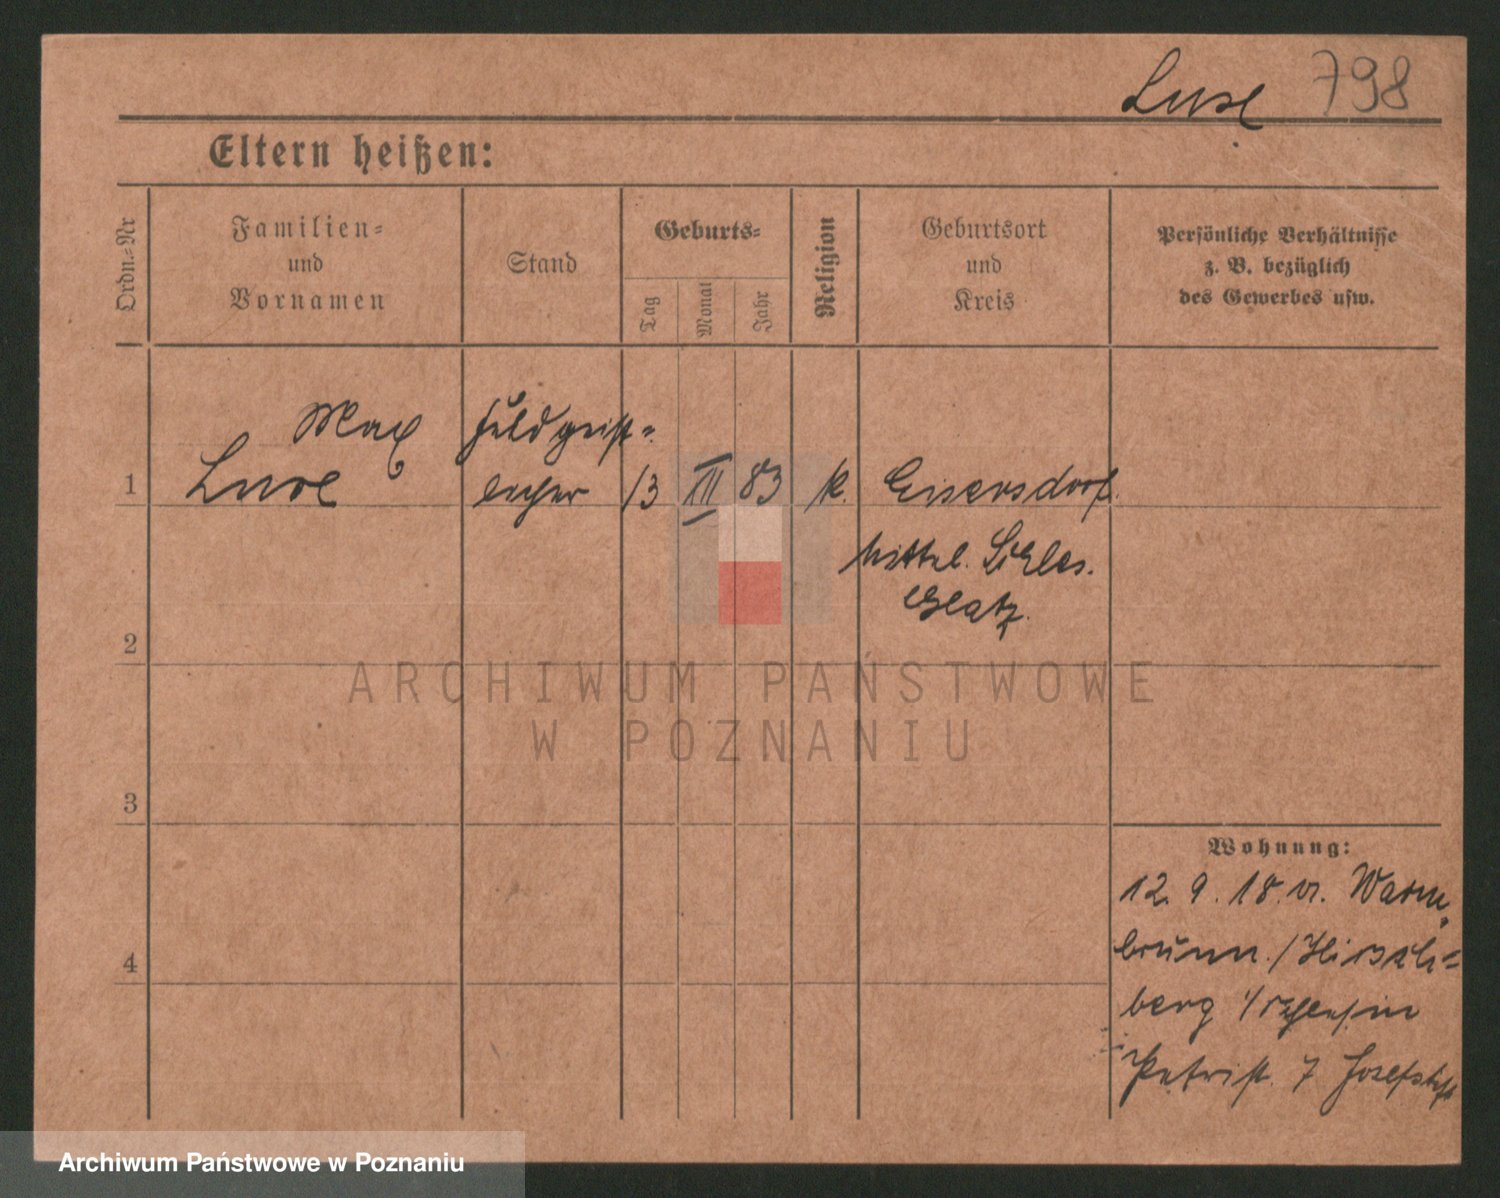 798
Eltern heißen:
Ordn.=Nr
Familien=
und
Vornamen
Stand
Geburts=
Tag
Monat
Jahr
Religion
Geburtsort
und
Kreis
Persönliche Verhältnisse
z. B. bezüglich
des Gewerbes usw.
Max
Feldgeist=
1
licher 13 XII 83 k. Eisersdorf
Mittel. Schles.
Glatz
2
ARCHIWUM PAŃSTWOWE
W POZNANIU
3
Wohnung:
12. 9. 18. v. Warm
brunn / Hirsch=
4
berg
Petrist. 7 Josefstift
Archiwum Państwowe w Poznaniu